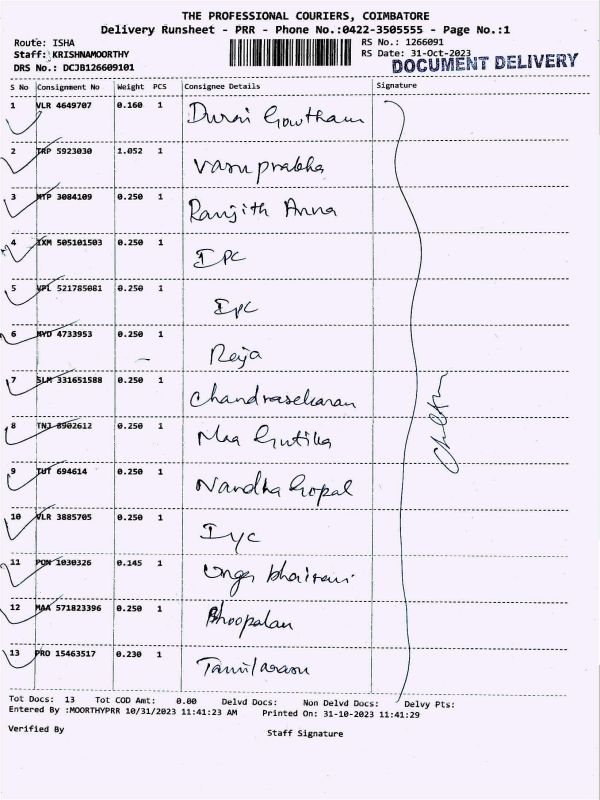 THE PROFESSIONAL COURIERS, COIMBATORE
Delivery Runsheet - PRR - Phone No.:0422-3505555 - Page No.:1
Route: ISHA RS No.: 1266091
Staff: KRISHNAMOORTHY RS Date: 31-Oct-2023
DRS No.: DCJB126609101 DOCUMENT DELIVERY
S No Consignment No Weight PCS Consignee Details Signature
1 VLR 4649707 0.160 1 Durai Gowtham
2 TRP 5923030 1.052 1 Vasu prabha
3 MTP 3084109 0.250 1 Ranjith Anna
4 IXM 505101503 0.250 1 IPC
5 VPL 521785081 0.250 1 IPC
6 HYD 4733953 0.250 1 Reija
7 SLM 331651588 0.250 1 Chandrasekaran
8 TNJ 8902612 0.250 1 Maa
9 TUT 694614 0.250 1 Nandha Gopal
10 VLR 3885705 0.250 1 IYC
11 PON 1030326 0.145 1 bhairavi
12 MAA 571823396 0.250 1 Bhoopalan
13 PRO 15463517 0.230 1 Tamilarasu
Tot Docs: 13 Tot COD Amt: 0.00 Delvd Docs: Non Delvd Docs: Delvy Pts:
Entered By :MOORTHYPRR 10/31/2023 11:41:23 AM Printed On: 31-10-2023 11:41:29
Verified By Staff Signature